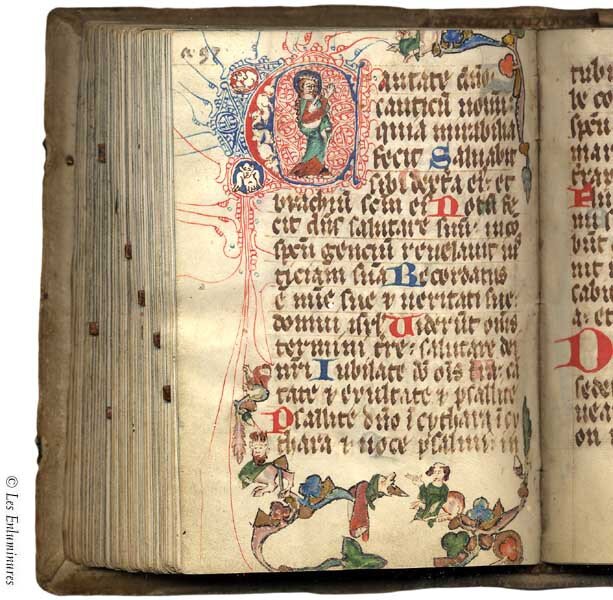 97
Cantate dño
canticū nouū
quia mirabilia
fecit Saluabit
sibi dextra ei⁹ et
brachiū scm̄ ei⁹ Notū fe
cit dñs salutare suū in co
spc̄u genciū reuelauit ius
ticiam suā Recordatus
ē mīe sue ⁊ veritati sue
domui isrl̄ Viderūt om̄s
termini tr̄e salutare dei
nr̄i Iubilate dō om̄s tr̄a cā
tate ⁊ exultate ⁊ psallite
Psallite dño ī cythara ī cy
thara ⁊ uoce psalmi in
le co
sede
© Les Enluminures